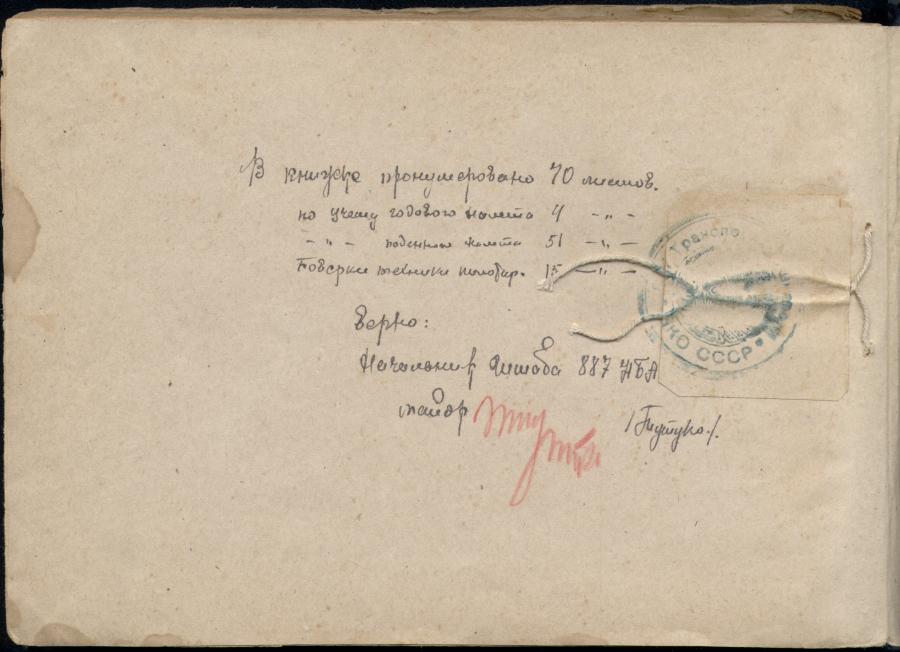 В книжке пронумеровано 70 листов.
по учету годового налета 4 – „ –
– „ – поденного налета 51 – „ –
Поверки техники пилотир. 15 – „ –
Верно:
Начальник Штаба 887 НБА
майор /Путуко/.
Транспо
НКО СССР